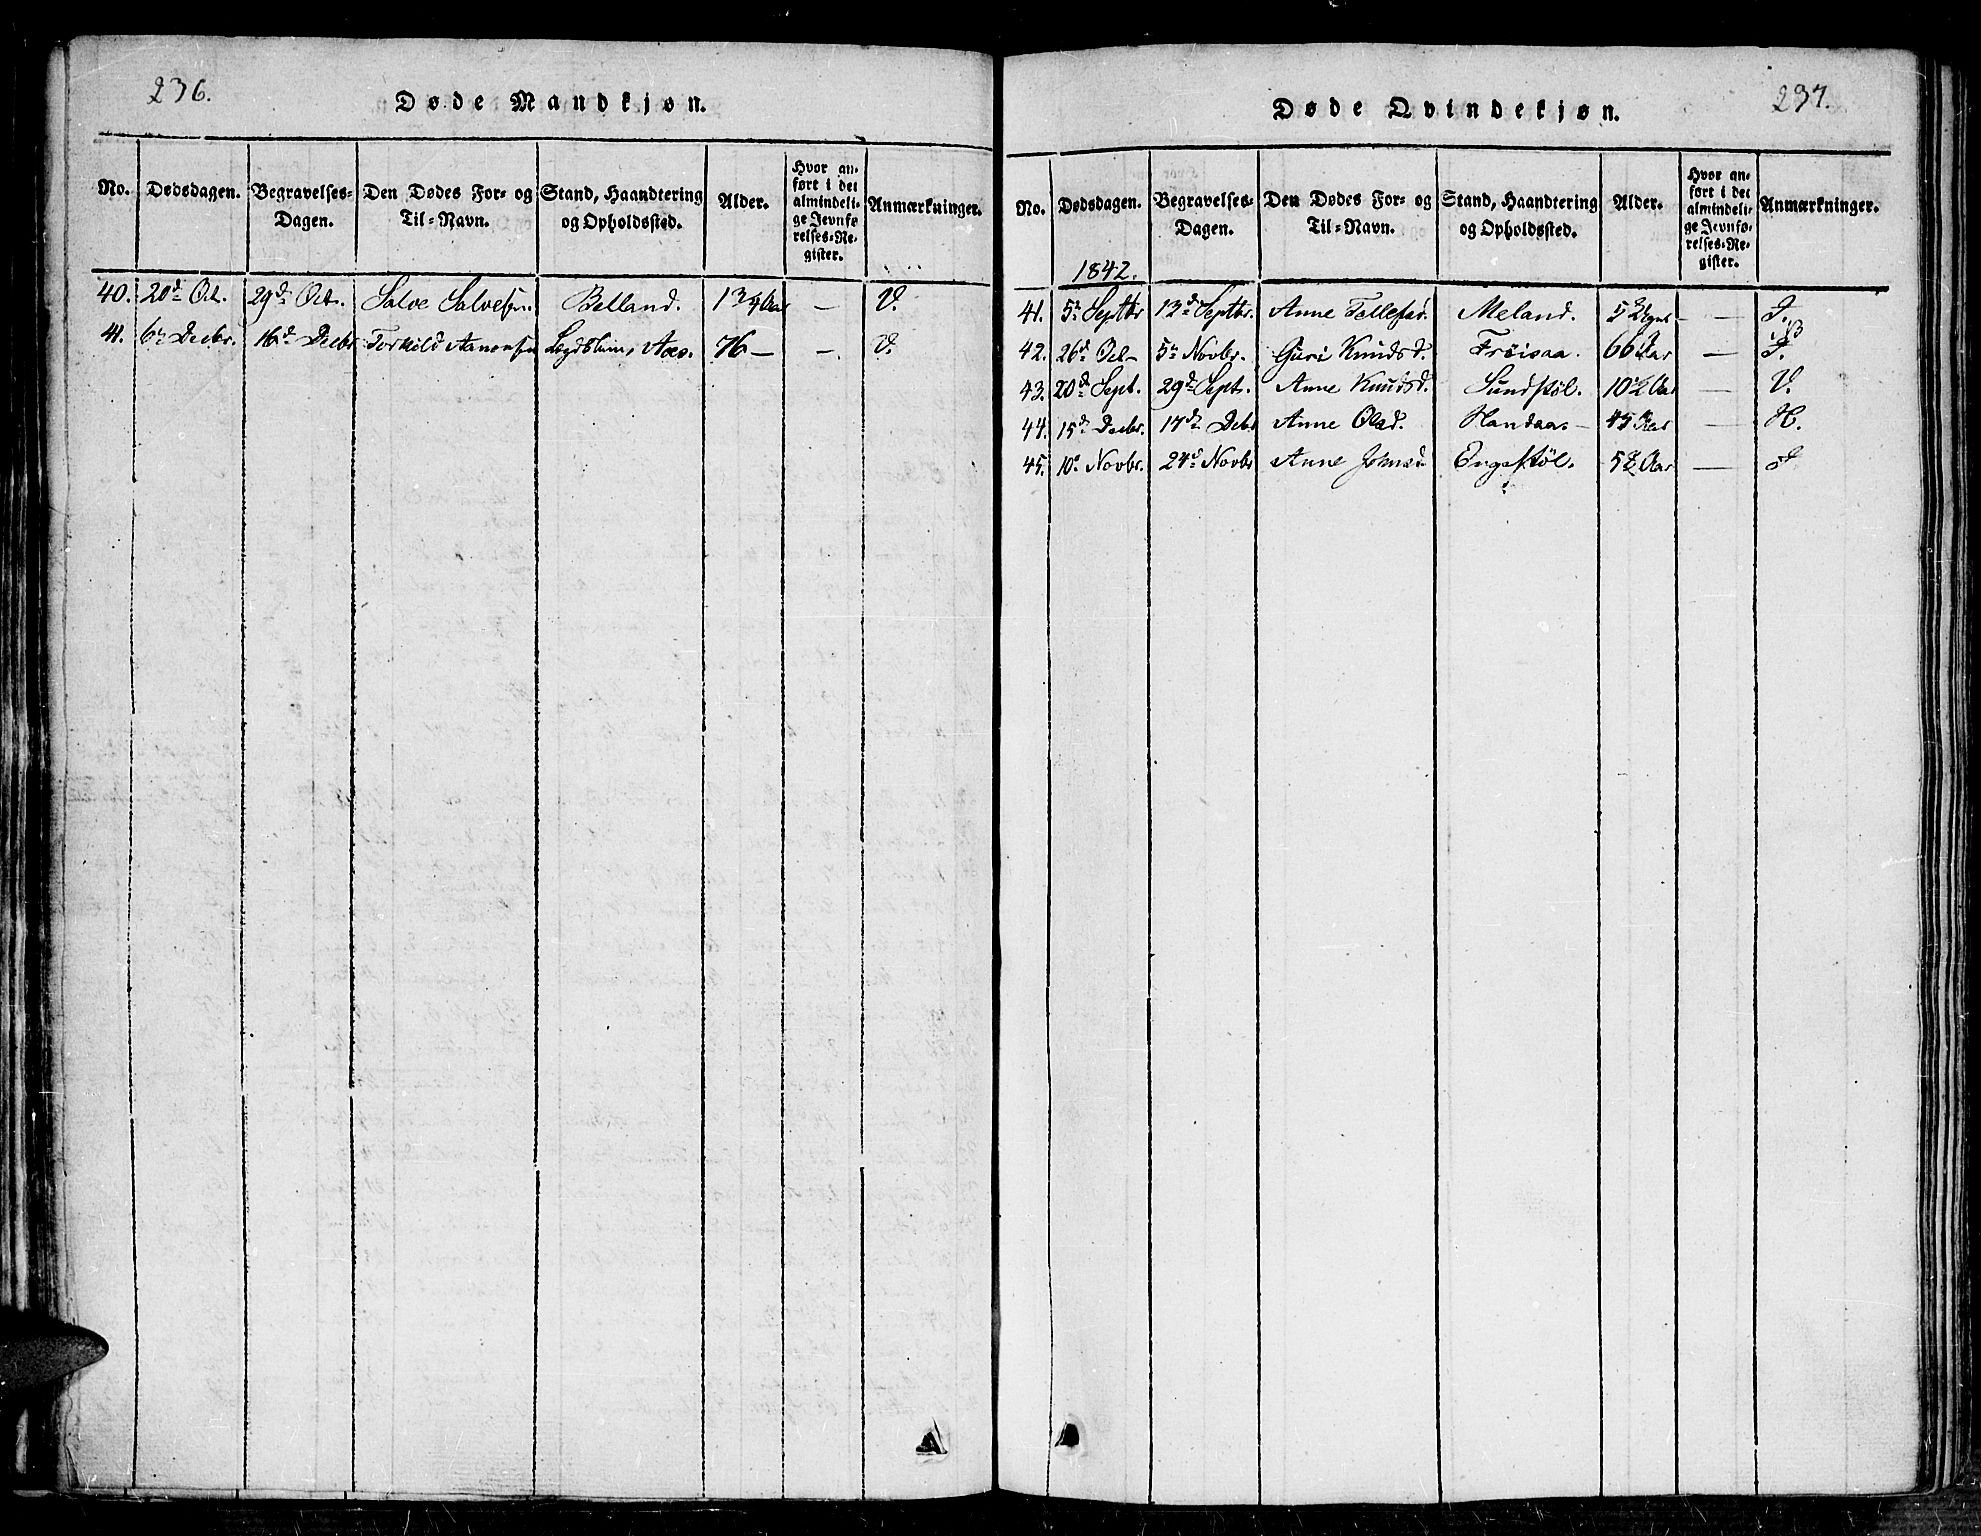 236.
Døde Mandkjøn.
No. Dødsdagen. Begravelses-Dagen. Den Dødes For- og Til-Navn. Stand, Haandtering og Opholdssted. Alder. Hvor anført i det almindelige Jevnførelses-Register. Anmærkninger.
40. 20de Oct. 29de Oct. Salve Salvesen. Belland. 13 — V.
41. 6te Decbr. 16de Decbr Torkild Aanonsen Aas. 76 — — V.
237.
Døde Qvindekjøn.
No. Dødsdagen. Begravelses-Dagen. Den Dødes For- og Til-Navn. Stand, Haandtering og Opholdssted. Alder. Hvor anført i det almindelige Jevnførelses-Register. Anmærkninger.
1842.
41. 5te Septbr 12de Septbr. Anne Tellefsd. Meland. — I.
42. 26de Oct 5te Novbr. Guri Knudsd. Frøisaa. 66 Aar — I.
43. 20de Sept. 29de Sept. Anne Knudsd. Sundstøl. 10½ Aar — V.
44. 15de Decbr. 17de Decbr Anne Olsd. Handaas 45 Aar — H.
45. 10de Novbr. 24de Novbr Anne Johnsd. Engestøl. 58 Aar — I